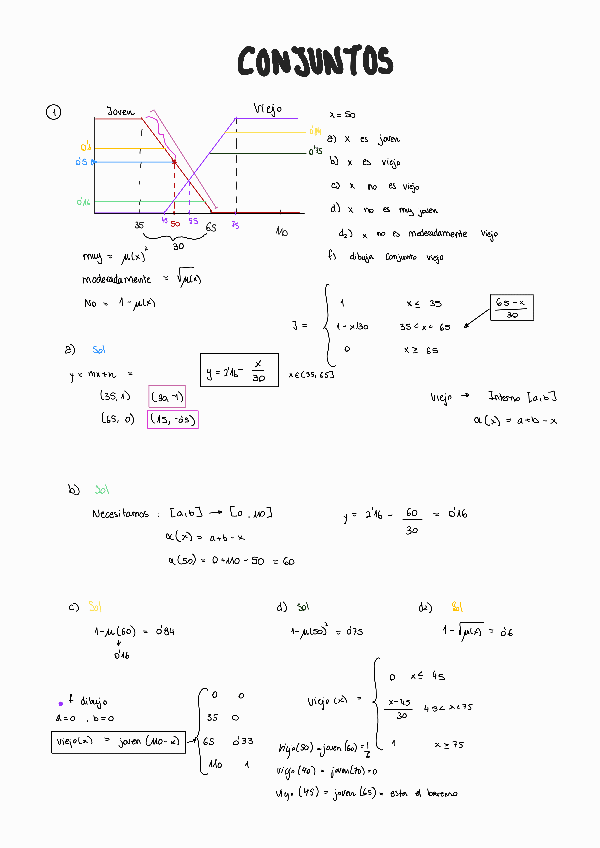 CONJUNTOS
1
Joven
Viejo
0'4
0'5
0'16
0'84
0'75
35
45
50
55
65
75
110
30
x = 50
a) x es joven
b) x es viejo
c) x no es viejo
d) x no es muy joven
d2) x no es moderadamente viejo
f) dibuja conjunto viejo
muy = μ(x)²
moderadamente = √μ(x)
No = 1 - μ(x)
J =
1 x ≤ 35
1 - x/30 35 < x < 65
0 x ≥ 65
65 - x / 30
a) Sol
y = mx + n =
y = 2'16 - x/30
x ∈ (35, 65]
(35, 1) (30, -1)
(65, 0) (15, -0'5)
Viejo → Interno [a, b]
α(x) = a + b - x
b) Sol
Necesitamos : [a, b] → [0, 110]
y = 2'16 - 60/30 = 0'16
α(x) = a + b - x
α(50) = 0 + 110 - 50 = 60
c) Sol
1 - μ(60) = 0'84
↓
0'16
d) Sol
1 - μ(50)² = 0'75
d2) Sol
1 - √μ(x) = 0'6
f dibujo
a = 0 , b = 0
viejo(x) = joven (110 - x)
0 0
35 0
65 0'33
110 1
Viejo (x) =
0 x ≤ 45
x - 45 / 30 45 < x < 75
1 x ≥ 75
viejo (50) = joven (60) = 1/6
viejo (40) = joven (70) = 0
viejo (45) = joven (65) = esta el